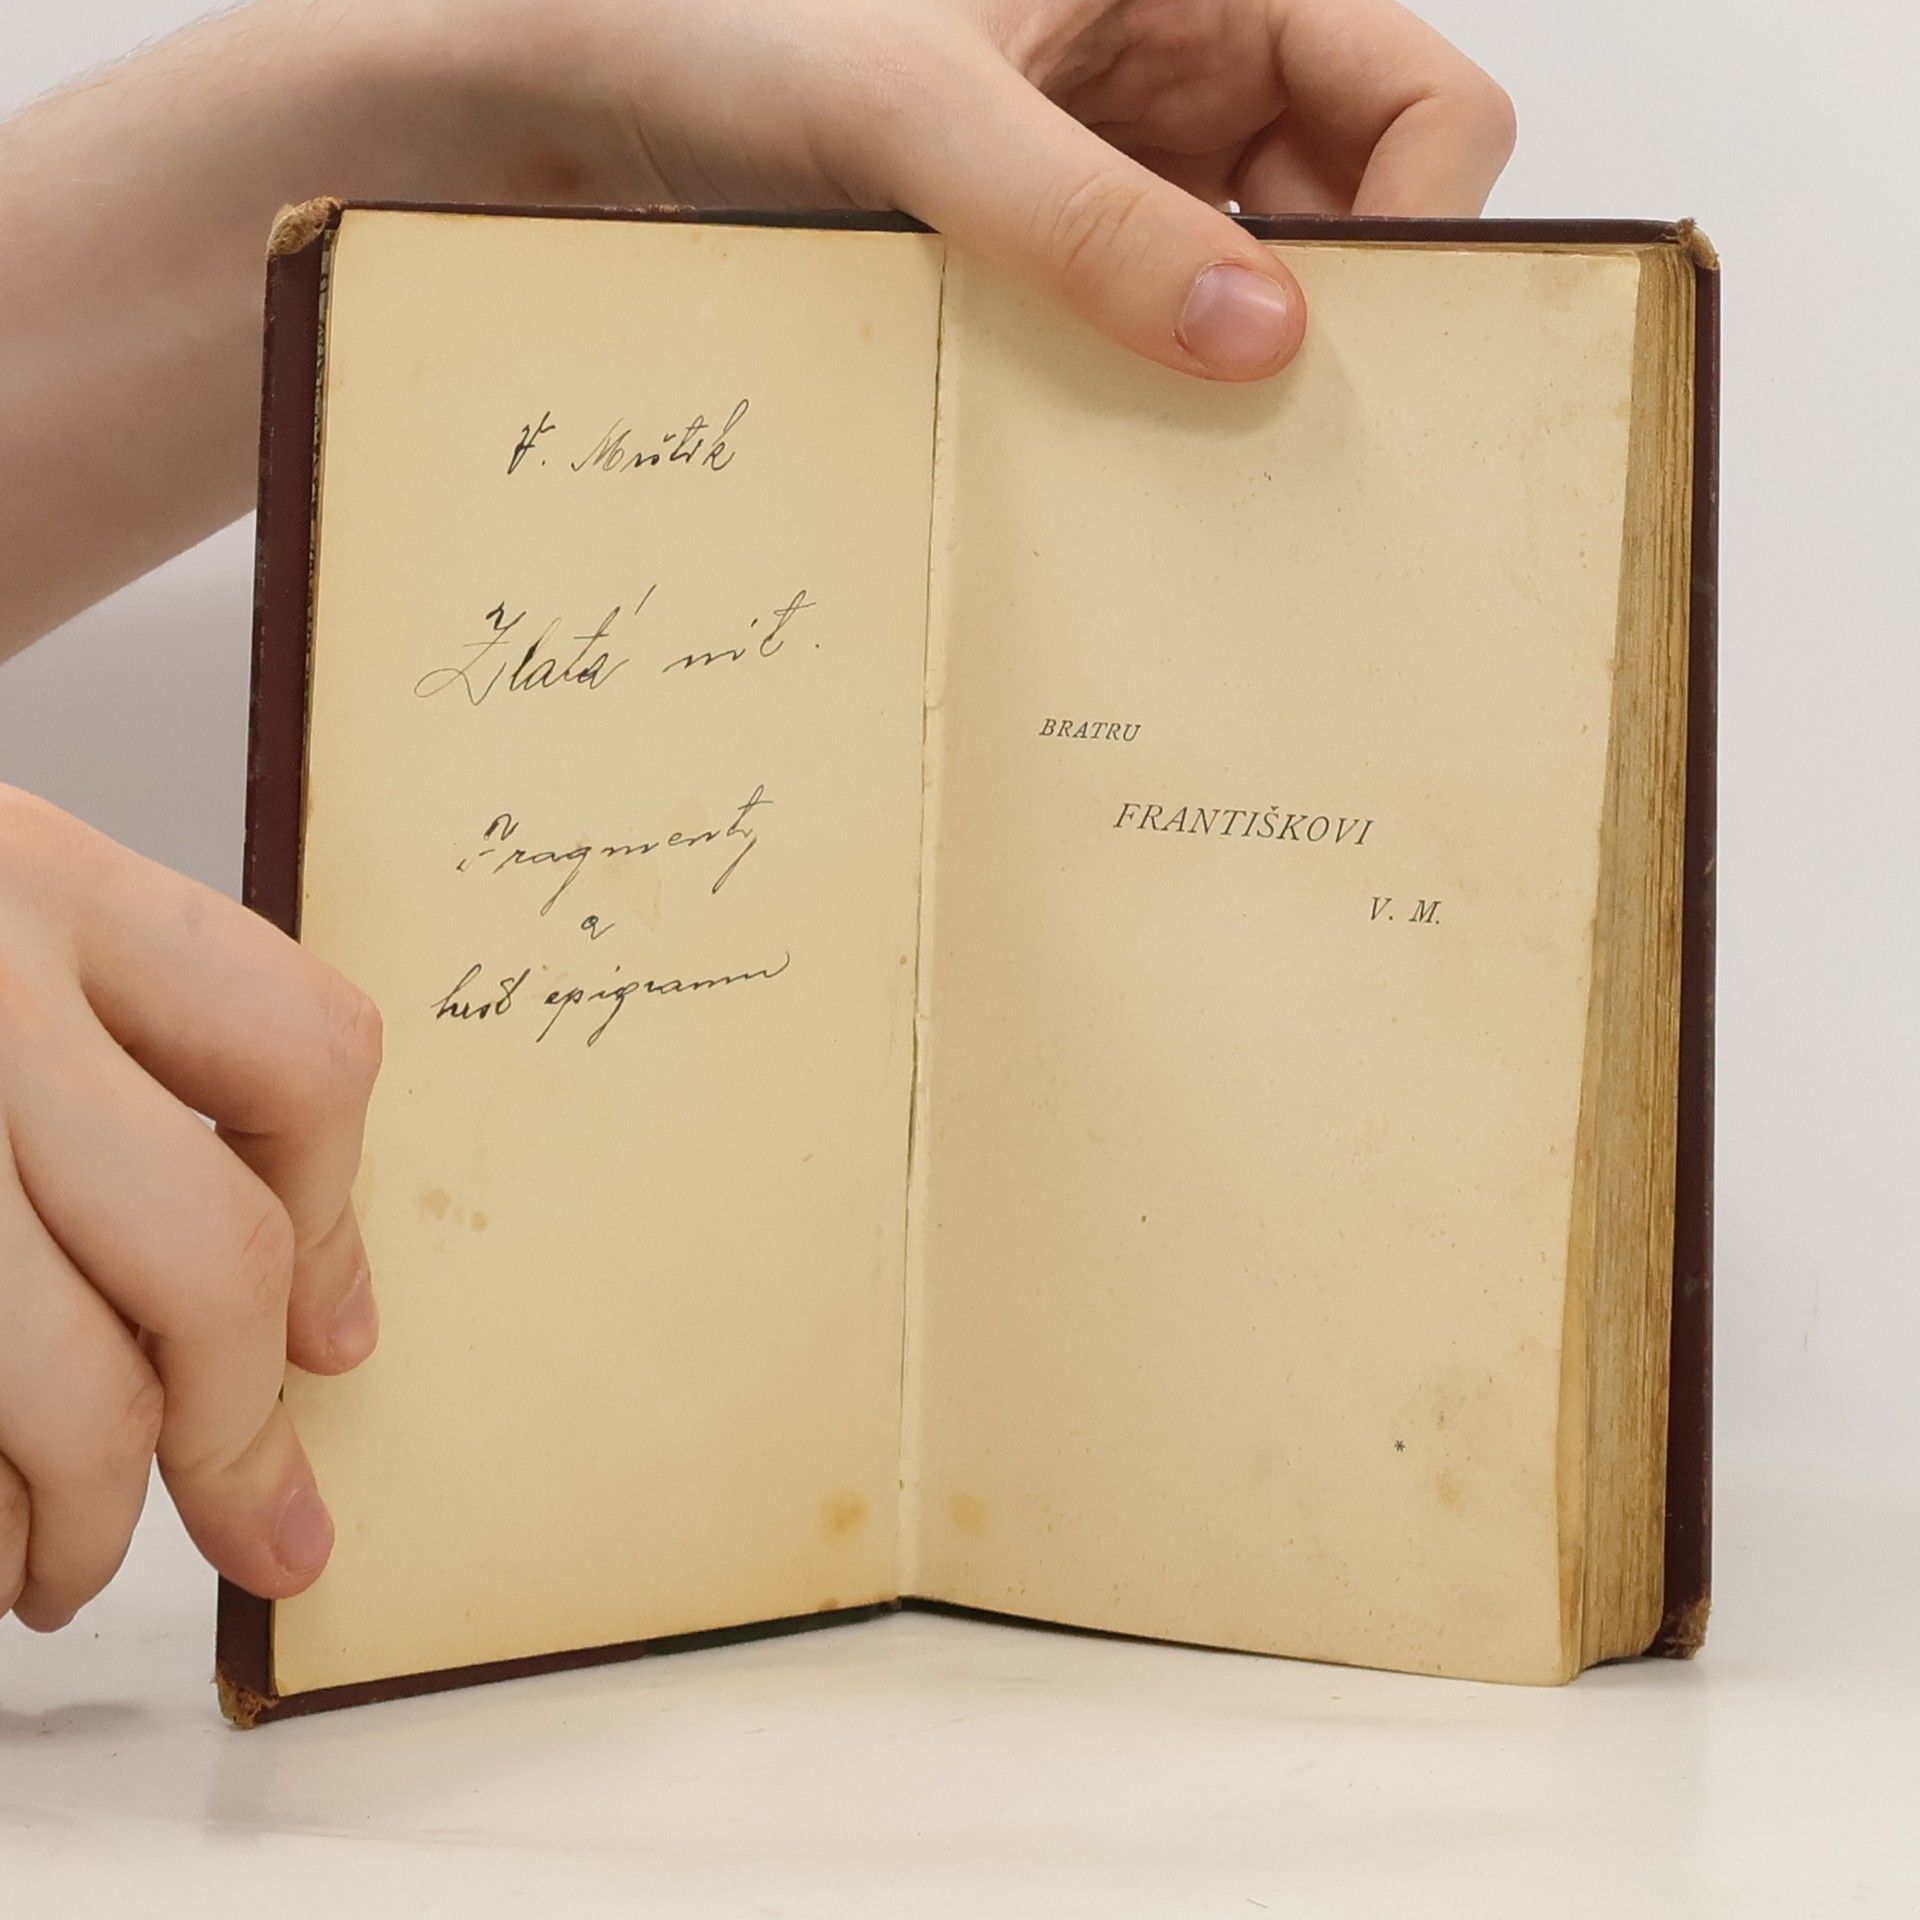 V. Mrštík
Zlatá nit.
Fragmenty
a
hrst epigramu
BRATRU
FRANTIŠKOVI
V. M.
*